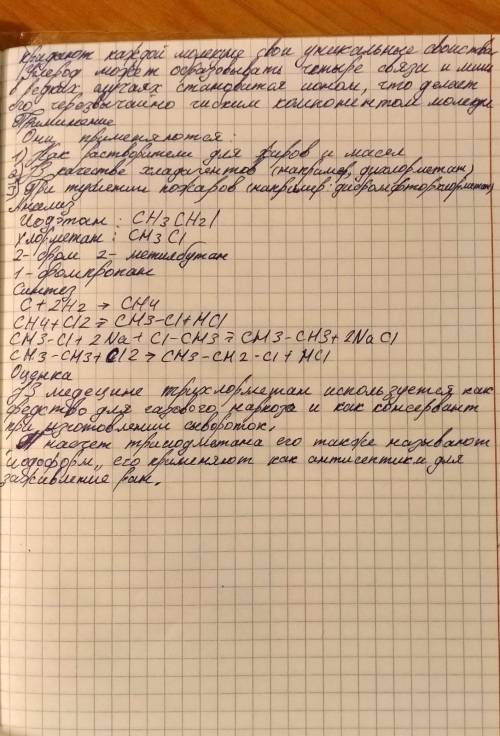 придают каждой молекуле свои уникальные свойства
Углерод может образовывать четыре связи и лишь
в редких случаях становится ионом, что делает
его черезвычайно гибким компонентом молекул
Применение
Они применяются:
1) Как растворители для жиров и масел
2) В качестве хладагентов (например, дихлорметан)
3) При тушении пожаров (например: дибромфторхлорметан)
Анализ
Иодэтан: CH3CH2I
Хлорметан: CH3Cl
2-бром 2-метилбутан
1-бромпропан
Синтез
C + 2H2 → CH4
CH4 + Cl2 → CH3-Cl + HCl
CH3-Cl + 2Na + Cl-CH3 → CH3-CH3 + 2NaCl
CH3-CH3 + Cl2 → CH3-CH2-Cl + HCl
Оценка
В медецине трихлорметан используется как
средство для наркоза и как консервант
при изготовлении сывороток.
насчет трииодметана его также называют
"иодоформ", его применяют как антисептики для
заживление ран.